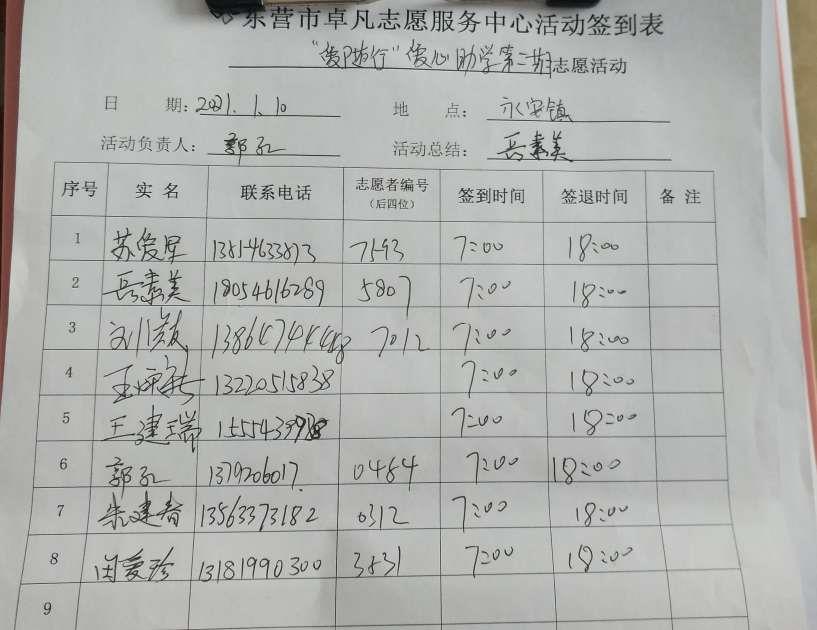 东营市卓凡志愿服务中心活动签到表
"爱随行"爱心助学第二期志愿活动
日 期: 2021.1.10 地 点: 永安镇
活动负责人: 郭红 活动总结: 岳素美
序号 实 名 联系电话 志愿者编号（后四位） 签到时间 签退时间 备 注
1 苏爱星 7593 7:00 18:00
2 岳素美 18054616289 5807 7:00 18:00
3 7012 7:00 18:00
4 13220515838 7:00 18:00
5 王建瑞 7:00 18:00
6 郭红 0484 7:00 18:00
7 朱建春 13563373182 0312 7:00 18:00
8 田爱珍 13181990300 3831 7:00 18:00
9